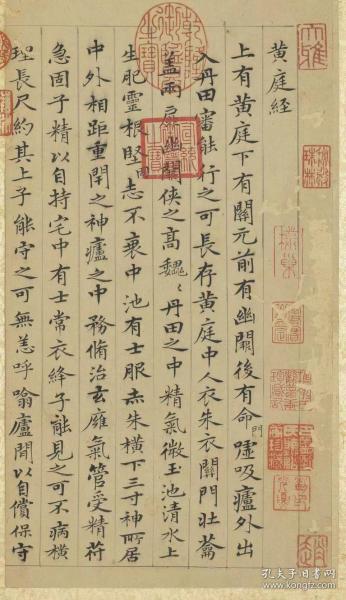 黄庭經
上有黄庭下有關元前有幽闕後有命門噓吸廬外出
入丹田審能行之可長存黄庭中人衣朱衣關門壯蘥
蓋兩扉幽闕俠之高巍〻丹田之中精氣微玉池清水上
生肥靈根堅固志不衰中池有士服赤朱橫下三寸神所居
中外相距重閇之神廬之中務脩治玄廱氣管受精苻
急固子精以自持宅中有士常衣絳子能見之可不病橫
理長尺約其上子能守之可無恙呼噏廬間以自償保守
孔夫子旧书网